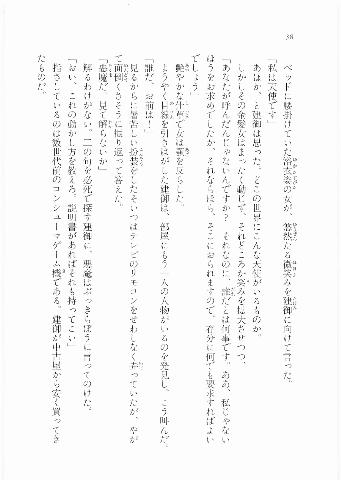 38
ベッドに腰掛けていた浴衣姿の女が、悠然たる微笑みを建御に向けて言った。
「私は天使です」
あほか、と建御は思った。どこの世界にこんな天使がいるものか。
しかしその金髪女はまったく動じず、それどころか笑みを拡大させつつ、
「あなたが呼んだんじゃないんですか？　それなのに、誰だとは何事です。ああ、私じゃない
ほうをお求めでしたか。それならほら、そこにおられますので、存分に何でも要求すればよい
でしょう」
艶やかな仕草で女は顎を反らした。
ようやく目線を引きはがした建御は、部屋にもう一人の人物がいるのを発見し、こう叫んだ。
「誰だ、お前は！」
見るからに暑苦しい扮装をしたそいつはテレビのリモコンをせわしなく弄っていたが、やが
て面倒くさそうに振り返って答えた。
「悪魔だ。見て解らないか」
解るわけがない。二の句を必死で探す建御に、悪魔はぶっきらぼうに言ってのけた。
「おい、これの動かし方を教えろ。説明書があればそれも持ってこい」
指さしているのは数世代前のコンシューマゲーム機である。建御が中古屋から安く買ってき
たものだ。